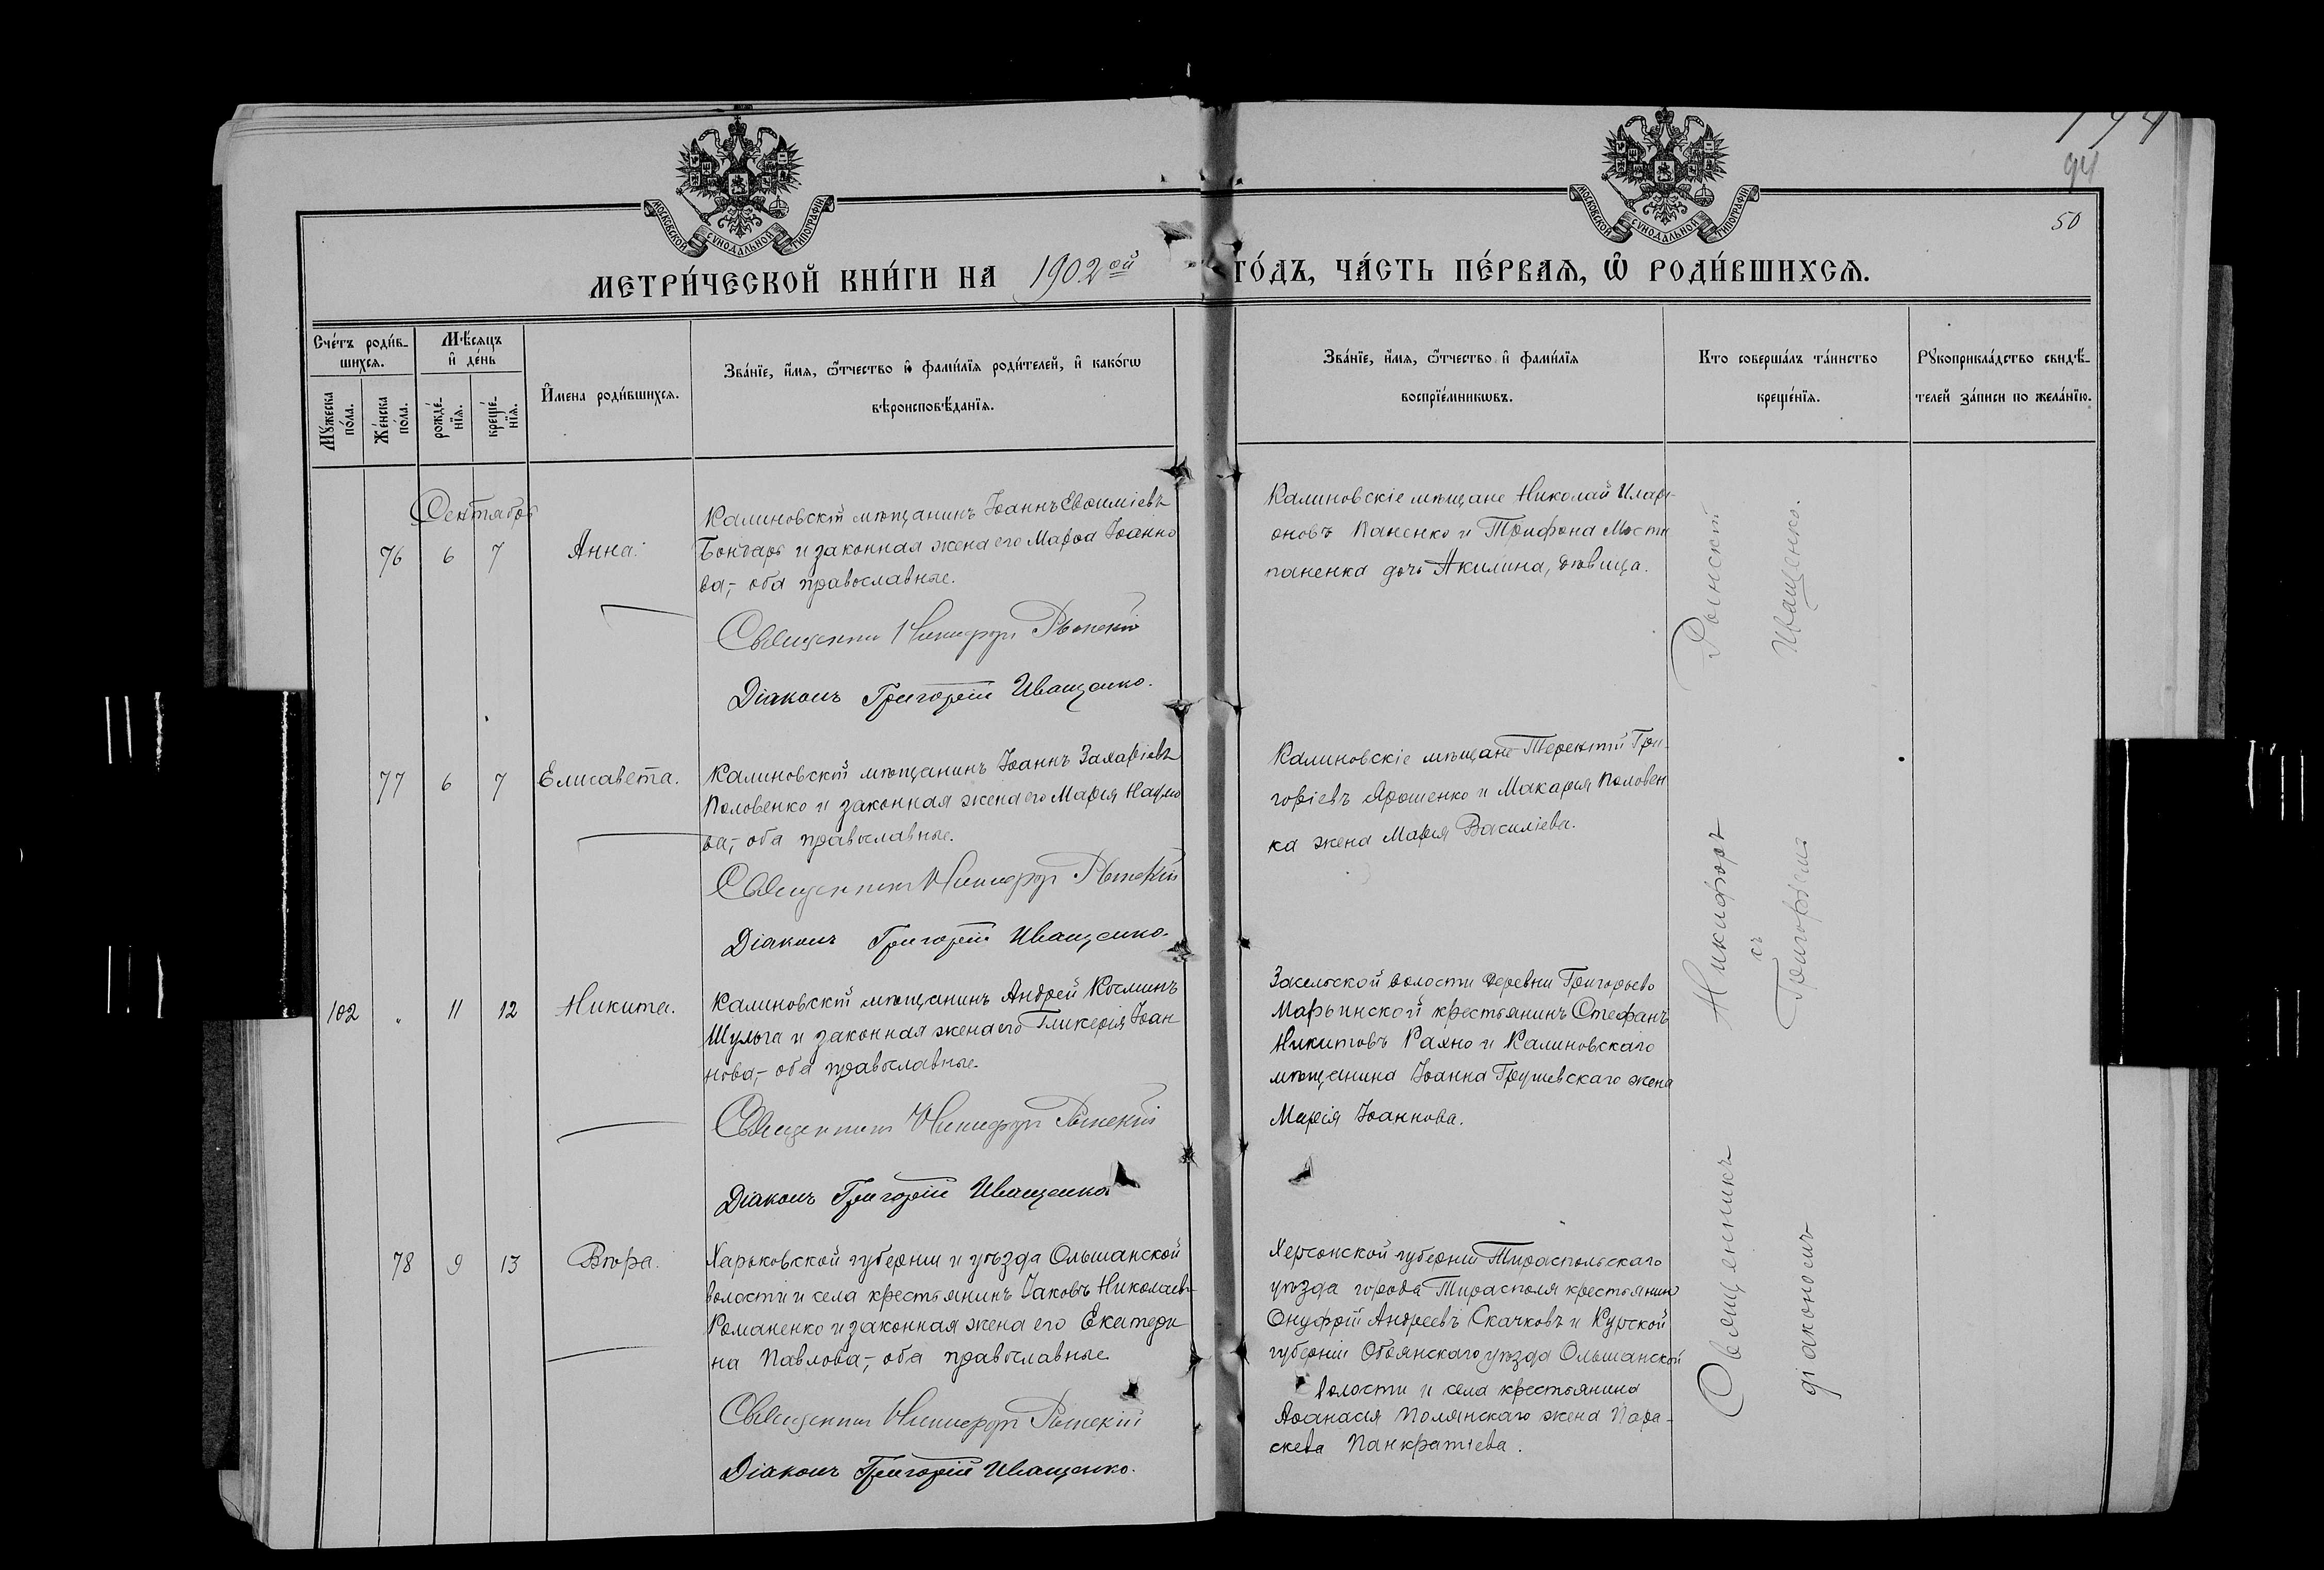 194
94
50
МОСКОВСКОЙ СУНОДАЛЬНОЙ ТИПОГРАФІИ
МОСКОВСКОЙ СУНОДАЛЬНОЙ ТИПОГРАФІИ
МЕТРИ́ЧЕСКОЙ КНИ́ГИ НА 1902ой ГО́ДЪ, ЧА́СТЬ ПЕ́РВАѦ, Ѡ҆ РОДИ́ВШИХСѦ.
Сче́тъ роди́в-
шихсѧ.
Мꙋ́жеска
по́ла.
Же́нска
по́ла.
Мѣ́сѧцъ
и҆ де́нь
рожде́-
нїѧ.
креще́-
нїѧ.
И҆мена роди́вшихсѧ.
Зва́нїе, и҆́мѧ, ѻ҆́тчество и҆ фами́лїѧ роди́телей, и҆ како́гѡ
вѣроисповѣ́данїѧ.
Зва́нїе, и҆́мѧ, ѻ҆́тчество и҆ фами́лїѧ
воспрїе́мникѡвъ.
Кто соверша́лъ та́инство
креще́нїѧ.
Рꙋкоприкла́дство свидѣ́-
телей за́писи по жела́нїю.
Сентябрь
76 6 7 Анна.
Калиновскій мѣщанинъ Іоаннъ Евѳиміевъ
Бондарь и законная жена его Марѳа Іоанно
ва,- оба православные.
Священникъ Никифоръ Рынскій
Діаконъ Григорій Иващенко.
Калиновскіе мѣщане Николай Илары-
оновъ Паненко и Трифона Мости
паненка дочь Акилина, дѣвица.
77 6 7 Елисавета.
Калиновскій мѣщанинъ Іоаннъ Захаріевъ
Половенко и законная жена его Марія Наумо
ва,- оба православные.
Священникъ Никифоръ Рынскій
Діаконъ Григорій Иващенко.
Калиновскіе мѣщане Терентій Гри-
горіевъ Ярошенко и Макарія Половен
ка жена Марія Василіева.
102 " 11 12 Никита.
Калиновскій мѣщанинъ Андрей Косминъ
Шульга и законная жена его Гликерія Іоан
нова,- оба православные.
Священникъ Никифоръ Рынскій
Діаконъ Григорій Иващенко
Засельской волости деревни Григорьево
Марьинской крестьянинъ Стефанъ
Никитовъ Рахно и Калиновскаго
мѣщанина Іоанна Грушевскаго жена
Марія Іоаннова.
78 9 13 Вѣра.
Харьковской губерніи и уѣзда Ольшанской
волости и села крестьянинъ Іаковъ Николаевъ
Романенко и законная жена его Екатери
на Павлова,- оба православные.
Священникъ Никифоръ Рынскій
Діаконъ Григорій Иващенко.
Херсонской губерніи Тираспольскаго
уѣзда города Тирасполя крестьянинъ
Онуфрій Андреевъ Скачковъ и Курской
губерніи Обоянскаго уѣзда Ольшанской
волости и села крестьянина
Аѳанасія Полянскаго жена Пара-
скева Панкратіева.
Священникъ Никифоръ Рынскій
съ
діакономъ Григоріемъ Иващенко.